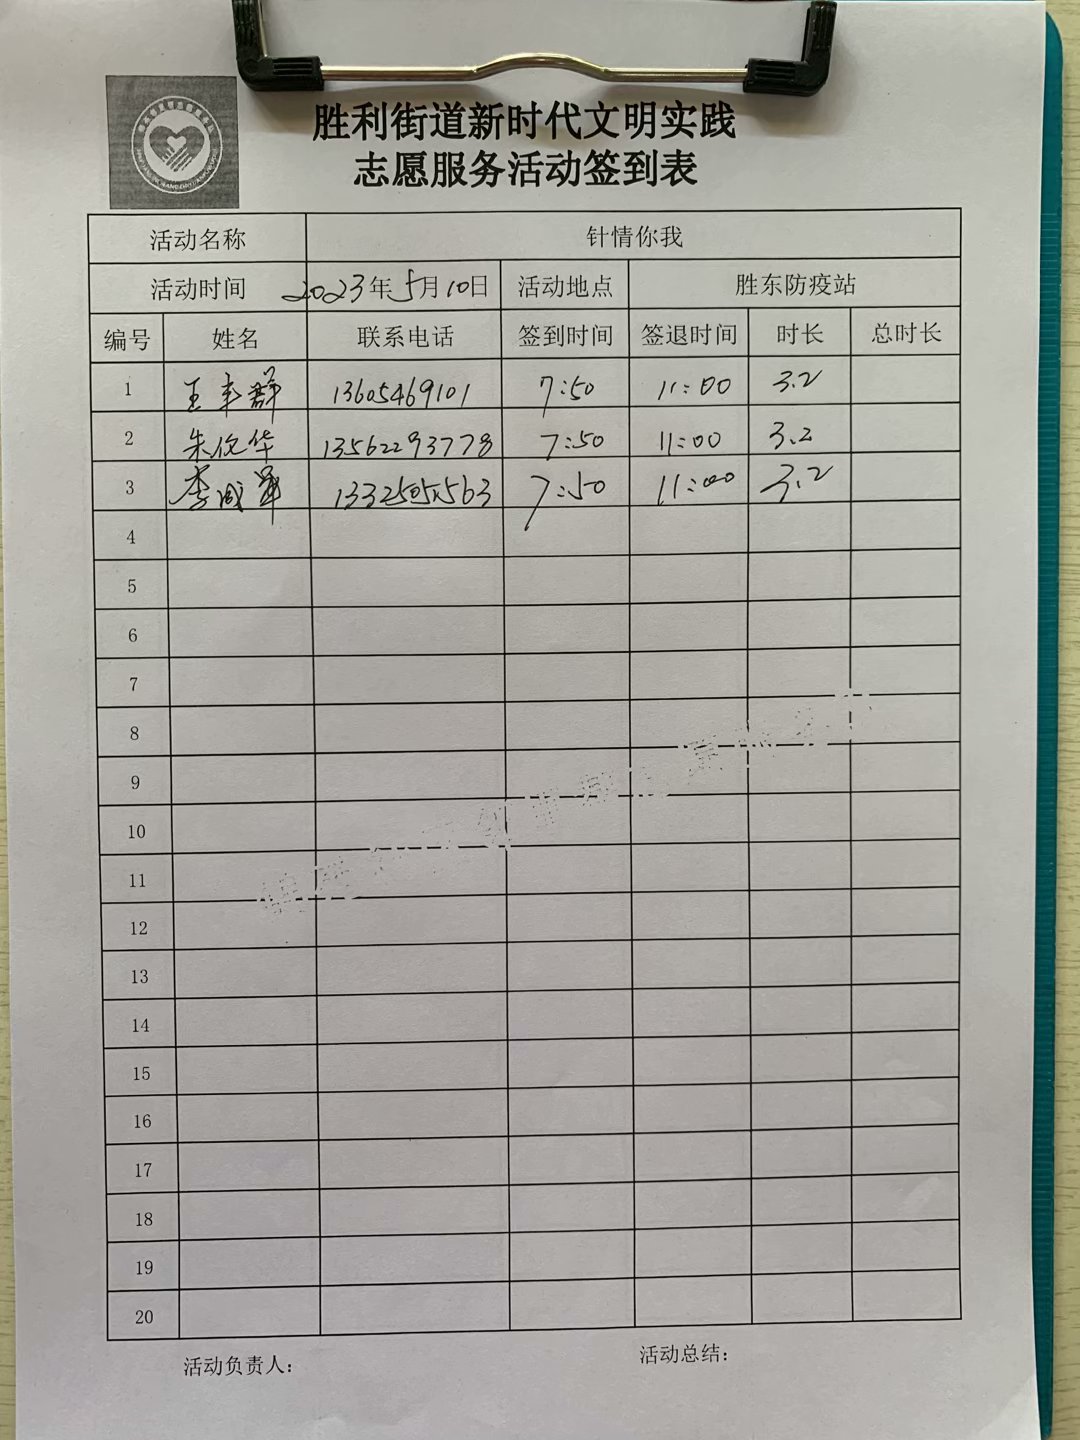 胜利街道新时代文明实践
志愿服务活动签到表
活动名称 针情你我
活动时间 2023年5月10日 活动地点 胜东防疫站
编号 姓名 联系电话 签到时间 签退时间 时长 总时长
1 王丰群 13605469101 7:50 11:00 3.2
2 朱俊华 13562293778 7:50 11:00 3.2
3 李成军 7:50 11:00 3.2
4
5
6
7
8
9
10
11
12
13
14
15
16
17
18
19
20
活动负责人: 活动总结: